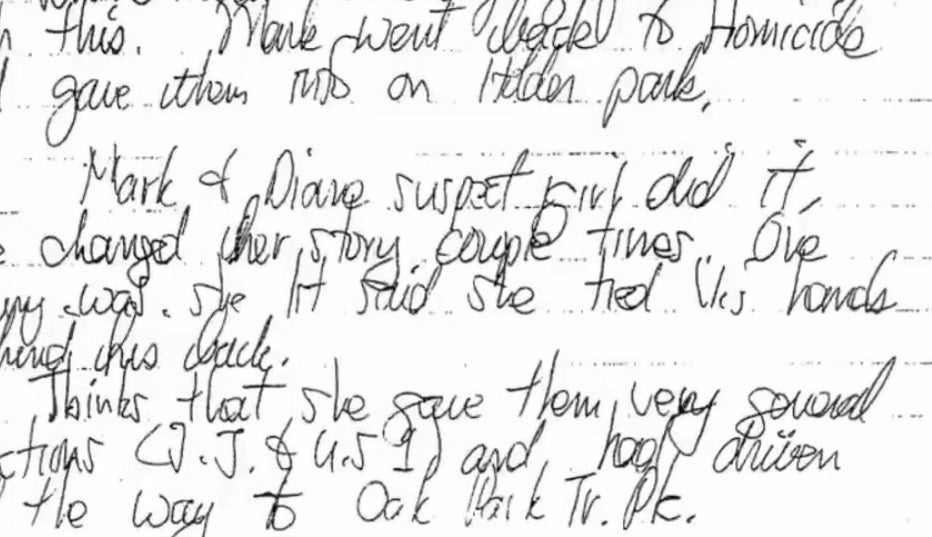 this. Mark went back to Homicide
gave them info on Holden park.
Mark & Diane suspect girl did it,
changed her story couple times. One
was she 1st said she tied Vic's hands
his back.
Thinks that she gave them very general
(J.J. & U.S 1) and had driven
the way to Oak Park Tr. Pk.